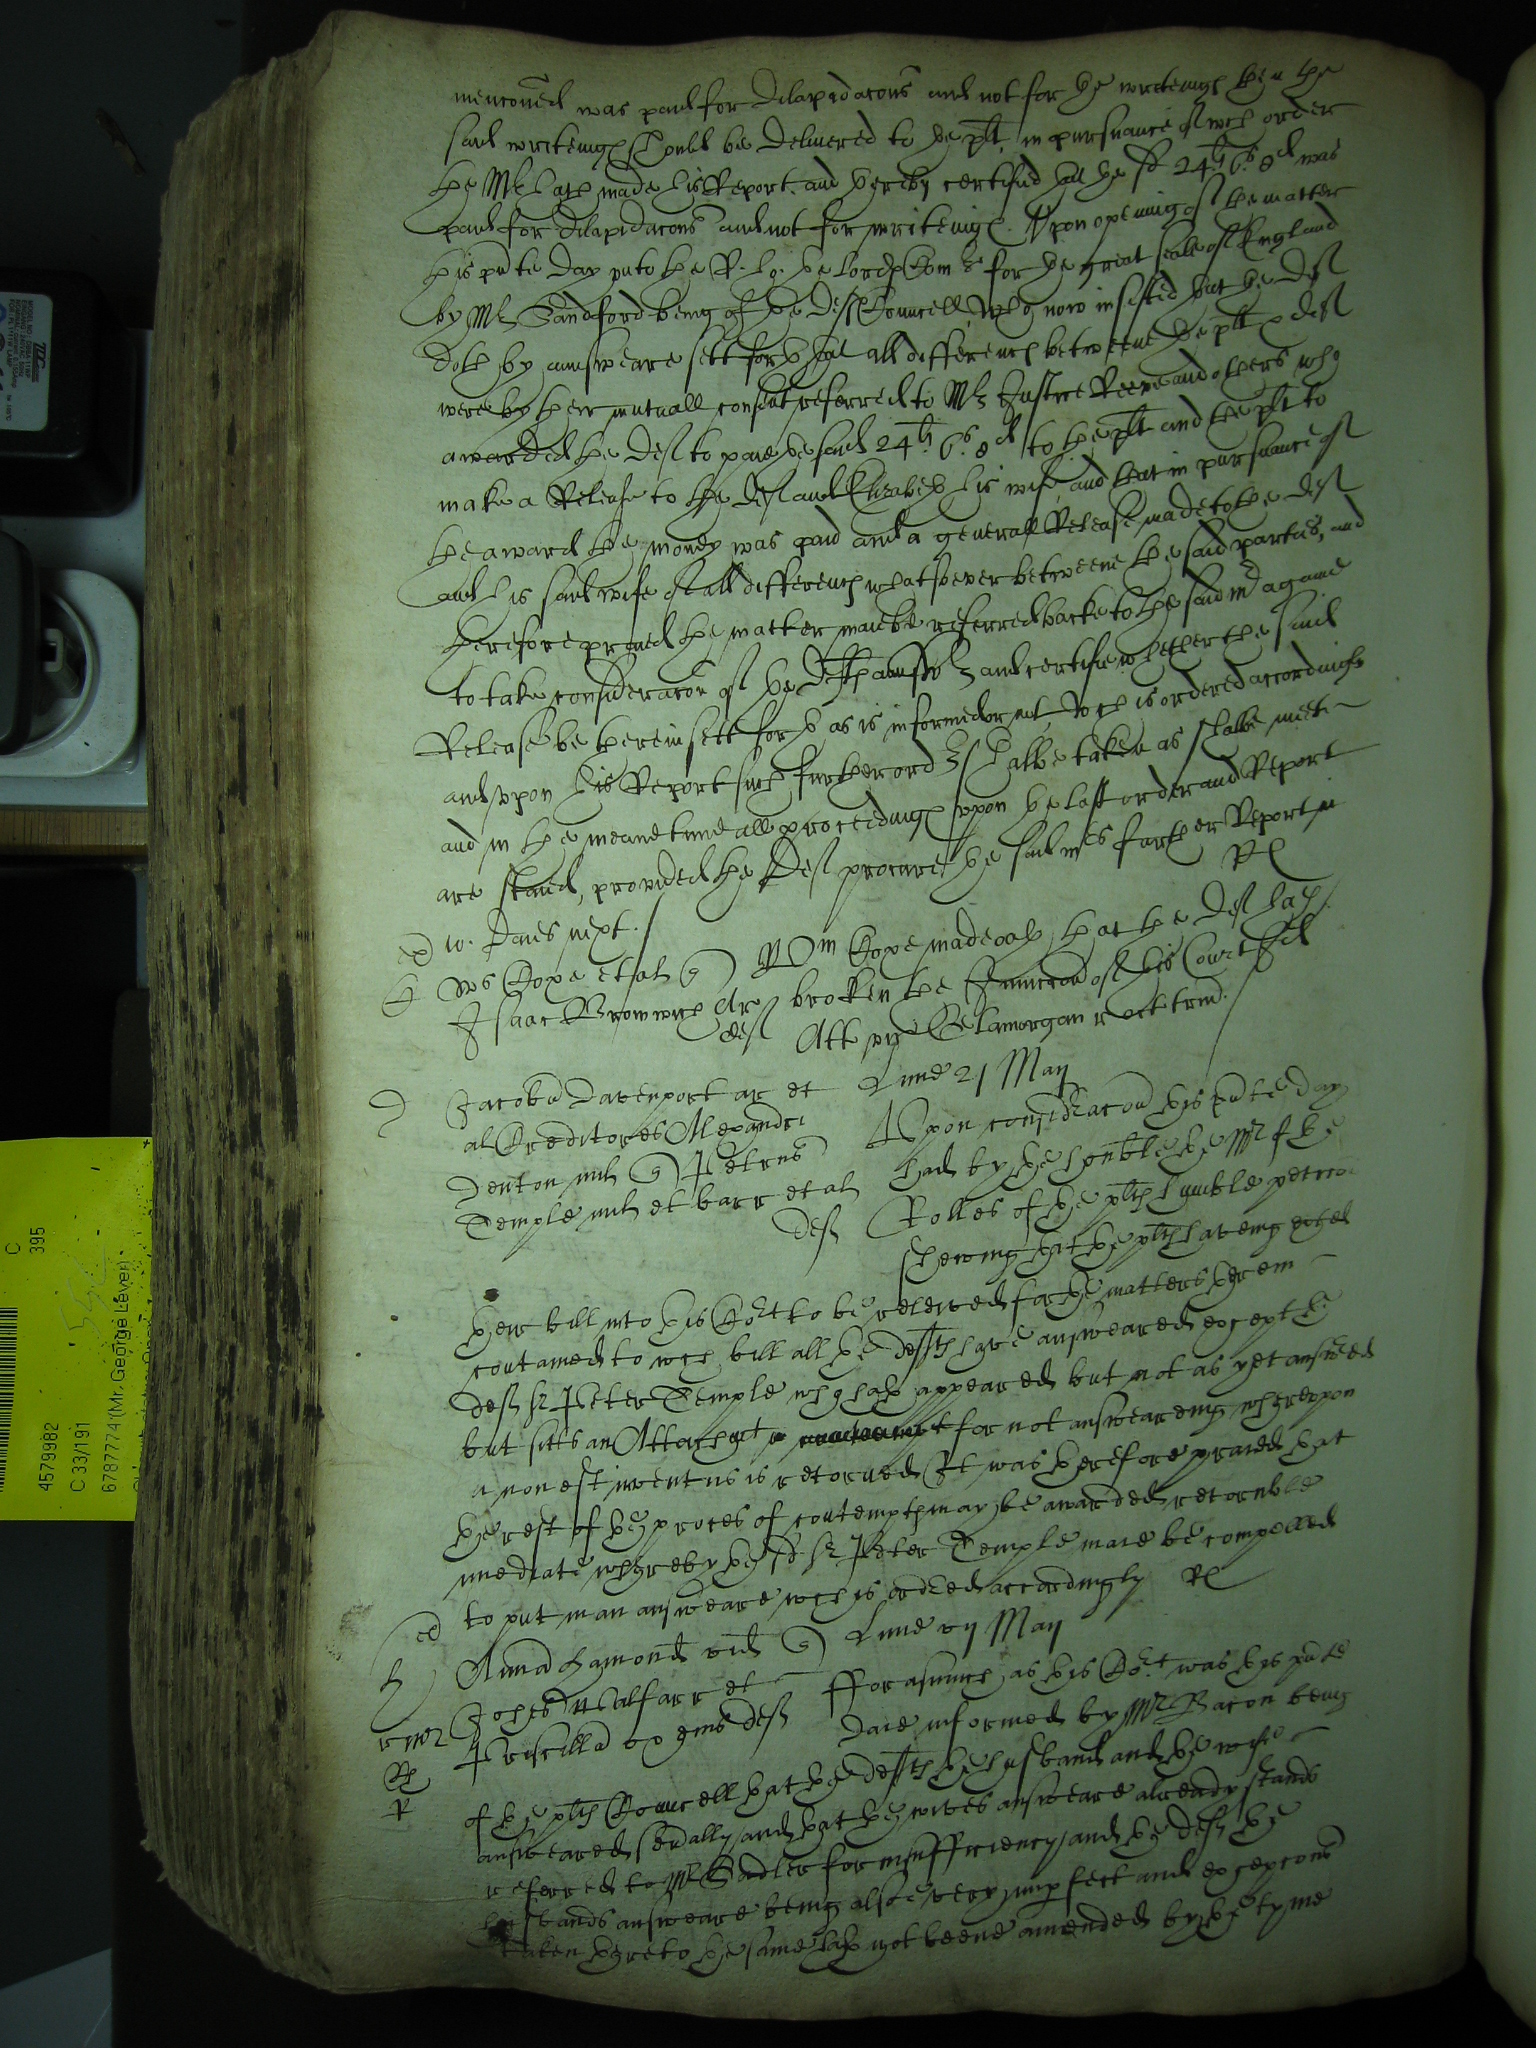 mencõned was paid for dilapidacõns and not for the writeings then the
said writeings should be delivered to the plt, in pursuance of wch order
the Mr hath made his Report and thereby certified that the sd 24li 6s 8d was
paid for dilapidacõns and not for writeings. Upon opening of the matter
this pnte day unto the R. ho: the lords Comrs for the great seale of England
by Mr Sandford being of the Defts Councell, who now insisted that the Deft
doth by answeare sett forth that all differences betweene the plt & deft
were by their mutuall consent referred to Mr Justice Reeve and others who
awarded the Deft to paie the said 24li. 6s. 8d to the plt and the plt to
make a Release to the Deft and Elizabeth his wife, and that in pursuance of
the award the money was paid and a generall Release made to the deft
and his said wife of all differences whatsoever betweene the said parties, and
therefore prayed the matter maie be referred backe to the said mr againe
to take consideracõn of the defts answr and certifie whether the said
Release be therein sett forth as is informed or not, wch is ordered accordingly
and upon his Report such further order shalbe taken as shalbe meete
and in the meane time all proceedings upon the last order and Report
are staied, provided the Deft procure the said mrs further Report in
10. daies next. Rl
Ws Cope et al q Wm Cope made oath that the Deft hath
Isaac Bromwich Ar broken the Injuncõn of this Court Id
deft Att vic Glamorgan r oct trin.
D Jacobus Davenport ar et Lune 21 Maij
al Creditores Alexandri Upon consideracõn this pnte day
Denton mil q Petrus had by the honble the Mr of the
Temple mil et barr et al Rolles of the plts humble peticõn
deft shewing that the plts haveing exhibited
their bill into this Cort to be releived for the matters therein
contained to wch bill all the defts have answeared except the
deft Sr Peter Temple who hath appeared but not as yet answered
but sitts an Attachmt for not answeareing whereupon
a non est inventus is retorned It was therefore praied that
the rest of the proces of contempts may be awarded retornble
imediate whereby the sd Sr Peter Temple maie be compelled
to put in an answeare wch is ordered accordingly Rl
h Anna Hamond vid q Lune 21 Maij
Johes Walfarr et Forasmuch as this Cort was this pnte
Priscilla ux eius deft daie informed by Mr Bacon being
of the plts Councell that the defts the husband and the wife
answeared severally and that the wives answeare already stands
referred to Mr Sadler for insufficiency and the deft the
husbands answeare being alsoe very imperfect and excepcõns
taken thereto the same hath not beene amended by the tyme
4579982
C 33/191
6787774 (Mr. George Leven)
C
395